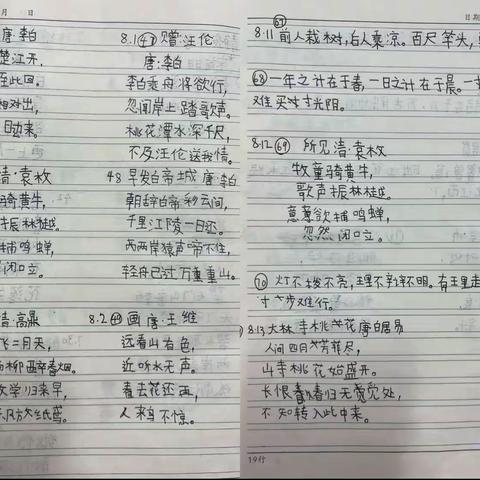 月 日
唐:李白
楚江开,
至此回。
相对出,
日边来。
清:袁枚
骑黄牛,
振林樾。
捕鸣蝉,
闭口立。
清:高鼎
飞二月天,
杨柳醉春烟。
散学归来早,
东风放纸鸢。
8.1 47 赠汪伦
唐:李白
李白乘舟将欲行,
忽闻岸上踏歌声。
桃花潭水深千尺,
不及汪伦送我情。
48 早发白帝城 唐:李白
朝辞白帝彩云间,
千里江陵一日还。
两岸猿声啼不住,
轻舟已过万重山。
8.2 49 画 唐:王维
远看山有色,
近听水无声。
春去花还在,
人来鸟不惊。
日期
67
8.11 前人栽树,后人乘凉。百尺竿头,
68 一年之计在于春,一日之计在于晨。一
难买寸光阴。
8.12 69 所见 清:袁枚
牧童骑黄牛,
歌声振林樾。
意欲捕鸣蝉,
忽然闭口立。
70 灯不拨不亮,理不辩不明。有理走
寸步难行。
8.13 大林寺桃花 唐白居易
人间四月芳菲尽,
山寺桃花始盛开。
长恨春归无觅处,
不知转入此中来。
19行